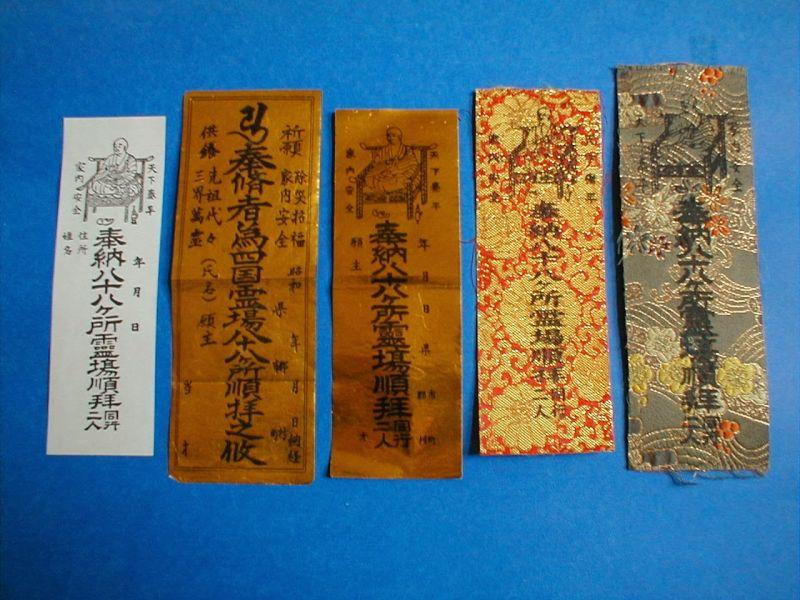 天下泰平
年 月 日
奉納八十八ヶ所靈塲順拜同行二人
家内安全
住所
姓名
祈願 除災招福
家内安全
昭和 年 月 日 納経
県 郡 町村
奉脩者為四国霊場八十八所順拝之攸
供養 先祖代々
三界萬霊
(氏名) 願主
当 才
天下泰平
年 月 日 県 市郡 町村
奉納八十八ヶ所靈塲順拜同行二人
家内安全
願主 才
天下泰平
奉納八十八ヶ所靈塲順拜同行二人
家内安全
奉納八十八ヶ所靈塲順拜同行二人
天下泰平